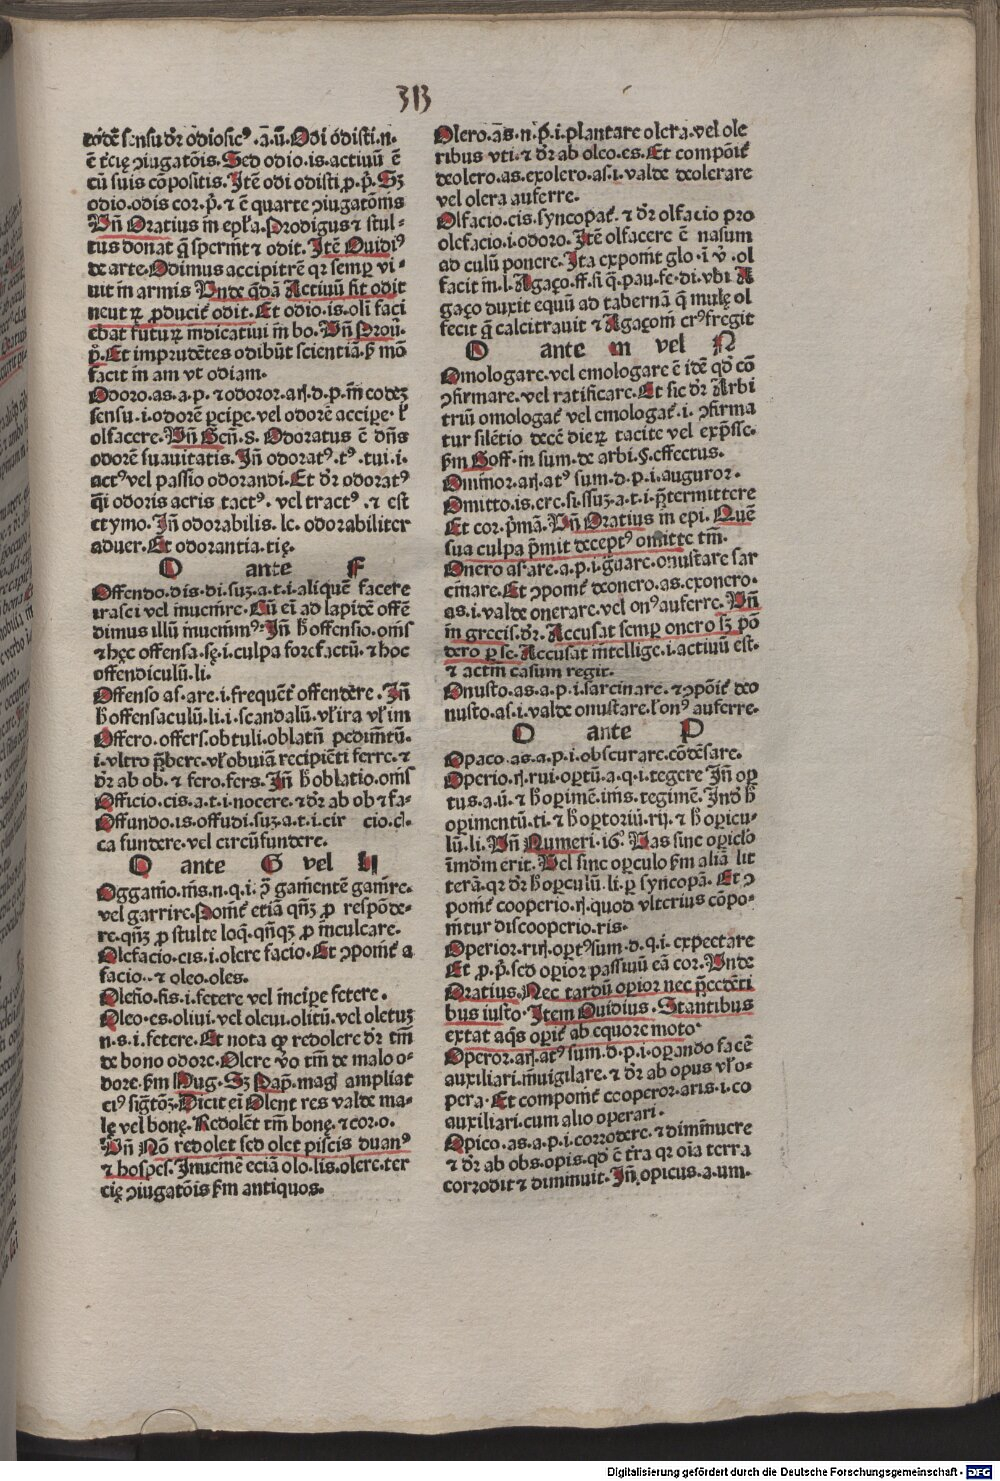 313
eodē sensu dr̄ odiosicꝰ.a.ū.Odi odisti.n.
ē t̄cię ↄiugatōis.Sed odio.is.actiuū ē
cū suis cōpositis.Itē odi odisti ꝓ.p̄.Sꝫ
odio.odis cor.p̄.⁊ ē quarte ↄiugatōnis
Vn̄ Oratius in epł̄a.Prodigus ⁊ stul-
tus donat q̄ spernit ⁊ odit.Itē Ouidiꝰ
de arte.Odimus accipitrē qꝛ semꝑ vi-
uit in armis Vnde q̄dā Actiuū fit odit
neutꝝ ꝓducit odit.Et odio.is.oli faci
ebat futuꝝ indicatiui in bo.Vn̄ Prou.
p̄.Et imprudētes odibūt scientiā.ꝑ mō
facit in am vt odiam.
Odoro.as.a.p.⁊ odoror.arꝭ.d.p.in eodeꝫ
sensu.i.odorē ꝑcipe.vel odorē accipe.ł
olfacere.Vn̄ Gen̄.8.Odoratus ē dn̄s
odorē suauitatis.Jn̄ odoratꝰ.tꝰ.tui.i.
actꝰ vel passio odorandi.Et dr̄ odoratꝰ
q̄i odoris aeris tactꝰ.vel tractꝰ.⁊ est
etymo.Jn̄ odorabilis.le.odorabiliter
aduer.Et odorantia.tię.
O ante F
Offendo.dis.di.suꝫ.a.t.i.aliquē facere
irasci vel inuenire.Cū ei ad lapidē offē
dimus illū inuenimꝰ.Jn̄ h̄ offensio.onis
⁊ hęc offensa.sę.i.culpa forefactū.⁊ hoc
offendiculū.li.
Offenso as.are.i.frequēt̄ offendere.Jn̄
h̄ offensaculū.li.i.scandalū.vł ira vł im
Offero.offers.obtuli.oblatū pedimētū.
i.vltro p̄bere.vł obuiā recipiēti ferre.⁊
dr̄ ab ob.⁊ fero.fers.Jn̄ h̄ oblatio.onis
Officio.cis.a.t.i.nocere.⁊ dr̄ ab ob ⁊ fa-
Offundo.is.offudi.suꝫ.a.t.i.cir cio.ci.
ca fundere.vel circūfundere.
O ante G vel H
Oggannio.nis.n.q.i.ↄ̄ gannientē gannire.
vel garrire.Ponit̄ etiā qn̄ꝫ ꝓ respōde-
re.qn̄ꝫ ꝓ stulte loq̄.qn̄qꝫ ꝓ inculcare.
Olefacio.cis.i.olere facio.Et ↄponit̄ a
facio..⁊ oleo.oles.
Olefio.fis.i.fetere vel incipe fetere.
Oleo.es.oliui.vel oleui.olitū.vel oletuꝫ
n.s.i.fetere.Et nota ꝙ redolere dr̄ tm̄
de bono odore.Olere v̄o tm̄ de malo o-
dore.ẜm Hug.Sꝫ Pap̄.magꝭ ampliat
eiꝰ sig̅tōꝫ.Dicit ei Olent res valde ma-
lę vel bonę.Redolēt tm̄ bonę.⁊ cor.o.
Vn̄ Nō redolet sed olet piscis duanꝰ
⁊ hospes.Inuenit̄ eciā olo.lis.olere.ter
cię ↄiugatōis ẜm antiquos.
Olero.as.n.p̄.i.plantare olera.vel ole
ribus vti.⁊ dr̄ ab oleo.es.Et compōit̄
deolero.as.exolero.as.i.valde deolerare
vel olera auferre.
Olfacio.cis.syncopat̄.⁊ dr̄ olfacio pro
olefacio.i.odoro.Itē olfacere ē nasum
ad culū ponere.Ita exponit glo.i v̄.ol
facit in.l.Agaço.ff.si q̄.pau.fe.di.vbi A
gaço duxit equū ad tabernā q̄ mulę ol
fecit q̄ calcitrauit ⁊ Agaçoni crꝰ fregit
O ante m vel N
Omologare.vel emologare ē idē qd̄ cō
ↄfirmare.vel ratificare.Et sic dr̄ Arbi
triū omologat̄ vel emologat̄.i.ↄfirma
tur silētio decē dieꝝ tacite vel exp̄sse.
ẜm Goff.in sum.de arbi.§.effectus.
Ominor.arꝭ.atꝰ sum.d.p.i.auguror.
Omitto.is.ere.si.ssuꝫ.a.t.i.p̄termittere
Et cor.p̄mā.Vn̄ Oratius in epi.Quē
sua culpa p̄mit deceptꝰ omitte tm̄.
Onero as are.a.p.i.g̅uare.onustare sar
cinare.Et ↄponit̄ deonero.as.exonero.
as.i.valde onerare.vel onꝰ auferre.Vn̄
in grecis.dr̄.Accusat semꝑ onero sꝫ pō
dero ꝑ se.Accusat intellige.i.actiuū est.
⁊ actm̄ casum regit.
Onusto.as.a.p.i.sarcinare.⁊ ↄpōit̄ deo
nusto.as.i.valde onustare.ł onꝰ auferre.
O ante P
Opaco.as.a.p.i.obscurare.cōdēsare.
Operio.rꝭ.rui.oꝑtū.a.q.i.tegere Jn̄ oꝑ
tus.a.ū.⁊ h̄ oꝑimē.inis.tegimē.Ind̄ h̄
oꝑimentū.ti.⁊ h̄ oꝑtoriū.rij.⁊ h̄ oꝑicu-
lū.li.Vn̄ Numeri.16.Vas sine oꝑiclo
īmūdm̄ erit.Vel sine oꝑculo ẜm aliā lit
terā.qꝛ dr̄ h̄ oꝑculū.li.ꝑ syncopā.Et ↄ
ponit̄ cooperio.rꝭ.quod vlterius cōpo-
nitur discooperio.ris.
Operior.rirꝭ.oꝑtꝰ sum.d.q.i.expectare
Et ꝓ.p̄.sed oꝑior passiuū eā cor.Vnde
Oratius.Nec tardū opior nec p̄cedēti
bus insto.Item Ouidius.Stantibus
extat aq̄s oꝑit̄ ab equore moto.
Operor.arꝭ.atꝰ sum.d.p.i.oꝑando facē
auxiliari.inuigilare.⁊ dr̄ ab opus vł o-
pera.Et componit̄ cooperor.aris.i.co
auxiliari.cum alio operari.
Opico.as.a.p.i.corrodere.⁊ diminuere
⁊ dr̄ ab obs.opis.qd̄ ē t̄ra qꝛ oīa terra
corrodit ⁊ diminuit.Jn̄.opicus.a.um.
Digitalisierung gefördert durch die Deutsche Forschungsgemeinschaft - DFG